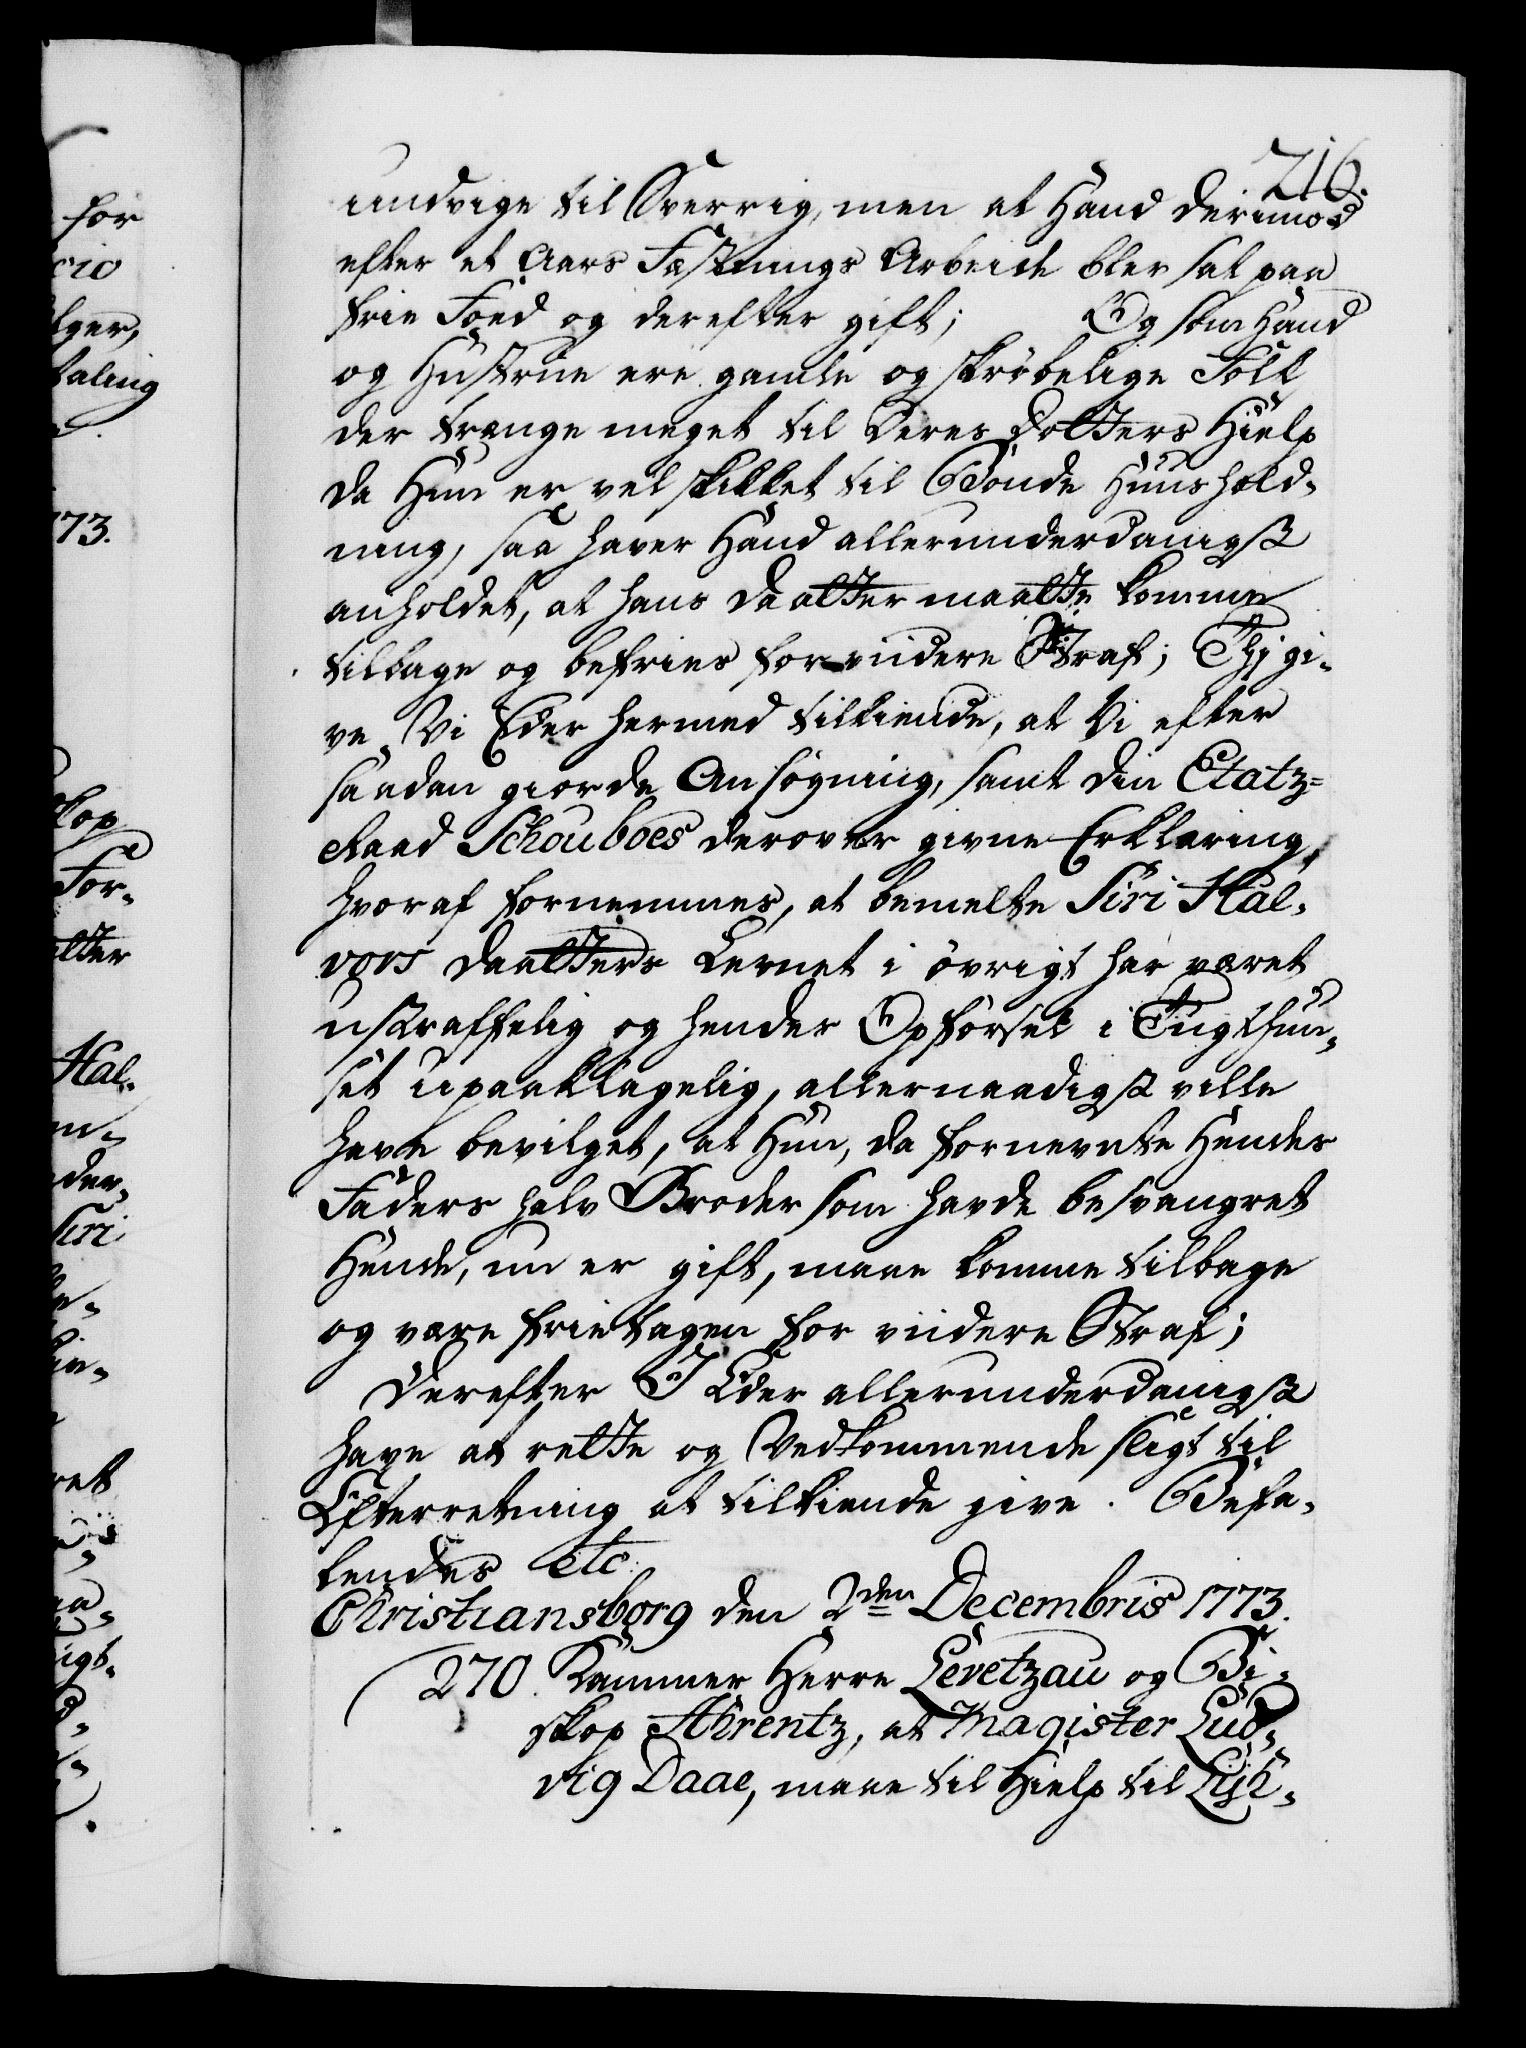 216.
undvige til Sverrig, men at Hand derimod
efter et Aars Fæstnings Arbeide blev sat paa
frie Foed og derefter gift; Og som Hand
og Hustrue ere gamle og skrøbelige Folk
der trænge meget til Deres Dotters Hielp
da Hun er vel skikket til Bonde Huushold-
ning, saa haver Hand allerunderdanigst
anholdet, at hans Daatter maatte komme
tilbage og befries for viidere Straf; Thj gi-
ve Vi Eder hermed tilkiende, at Vi efter
saadan giorde Ansøgning, samt din Etatz-
Raad Schouboes derover givne Erklæring,
hvoraf fornemmes, at bemelte Siri Hal-
vors Daatters Levnet i øvrigt har været
ustraffelig og hendes Opførsel i Tugthuu-
set upaaklagelig, allernaadigst ville
have bevilget, at Hun, da fornevnte Hendes
Faders halv Broder som havde besvangret
Hende, nu er gift, maae komme tilbage
og være frietagen for viidere Straf;
Derefter I Eder allerunderdanigst
have at rette og Vedkommende sligt til
Efterretning at tilkiende give. Befa-
lendes etc.
Christiansborg den 2den Decembris 1773.
270. Kammer Herre Levetzau og Bi-
skop Ahrentz, at Magister Lud-
vig Daae, maae til Hielp til Liss-
for
cio
lger,
taling
173.
kop
For-
atter
Hal-
der-
Siri
ret
igt-